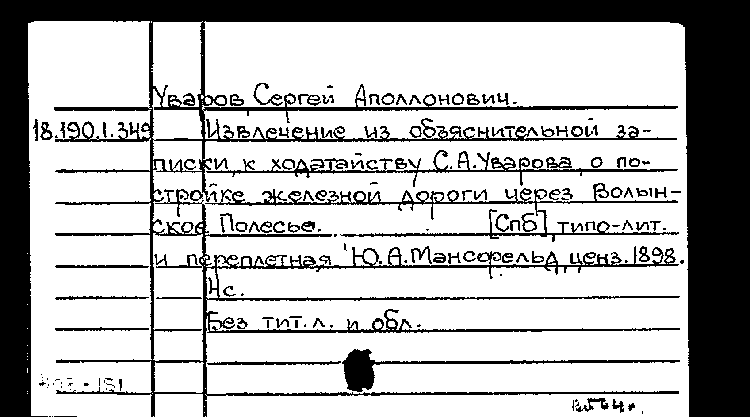 Уваров, Сергей Аполлонович.
18.190.1.349 Извлечение из объяснительной за-
писки к ходатайству С.А.Уварова о по-
стройке железной дороги через Волын-
ское Полесье. [Спб], типо-лит.
и переплетная Ю.А.Мансфельд, ценз.1898.
Чс.
Без тит.л. и обл.